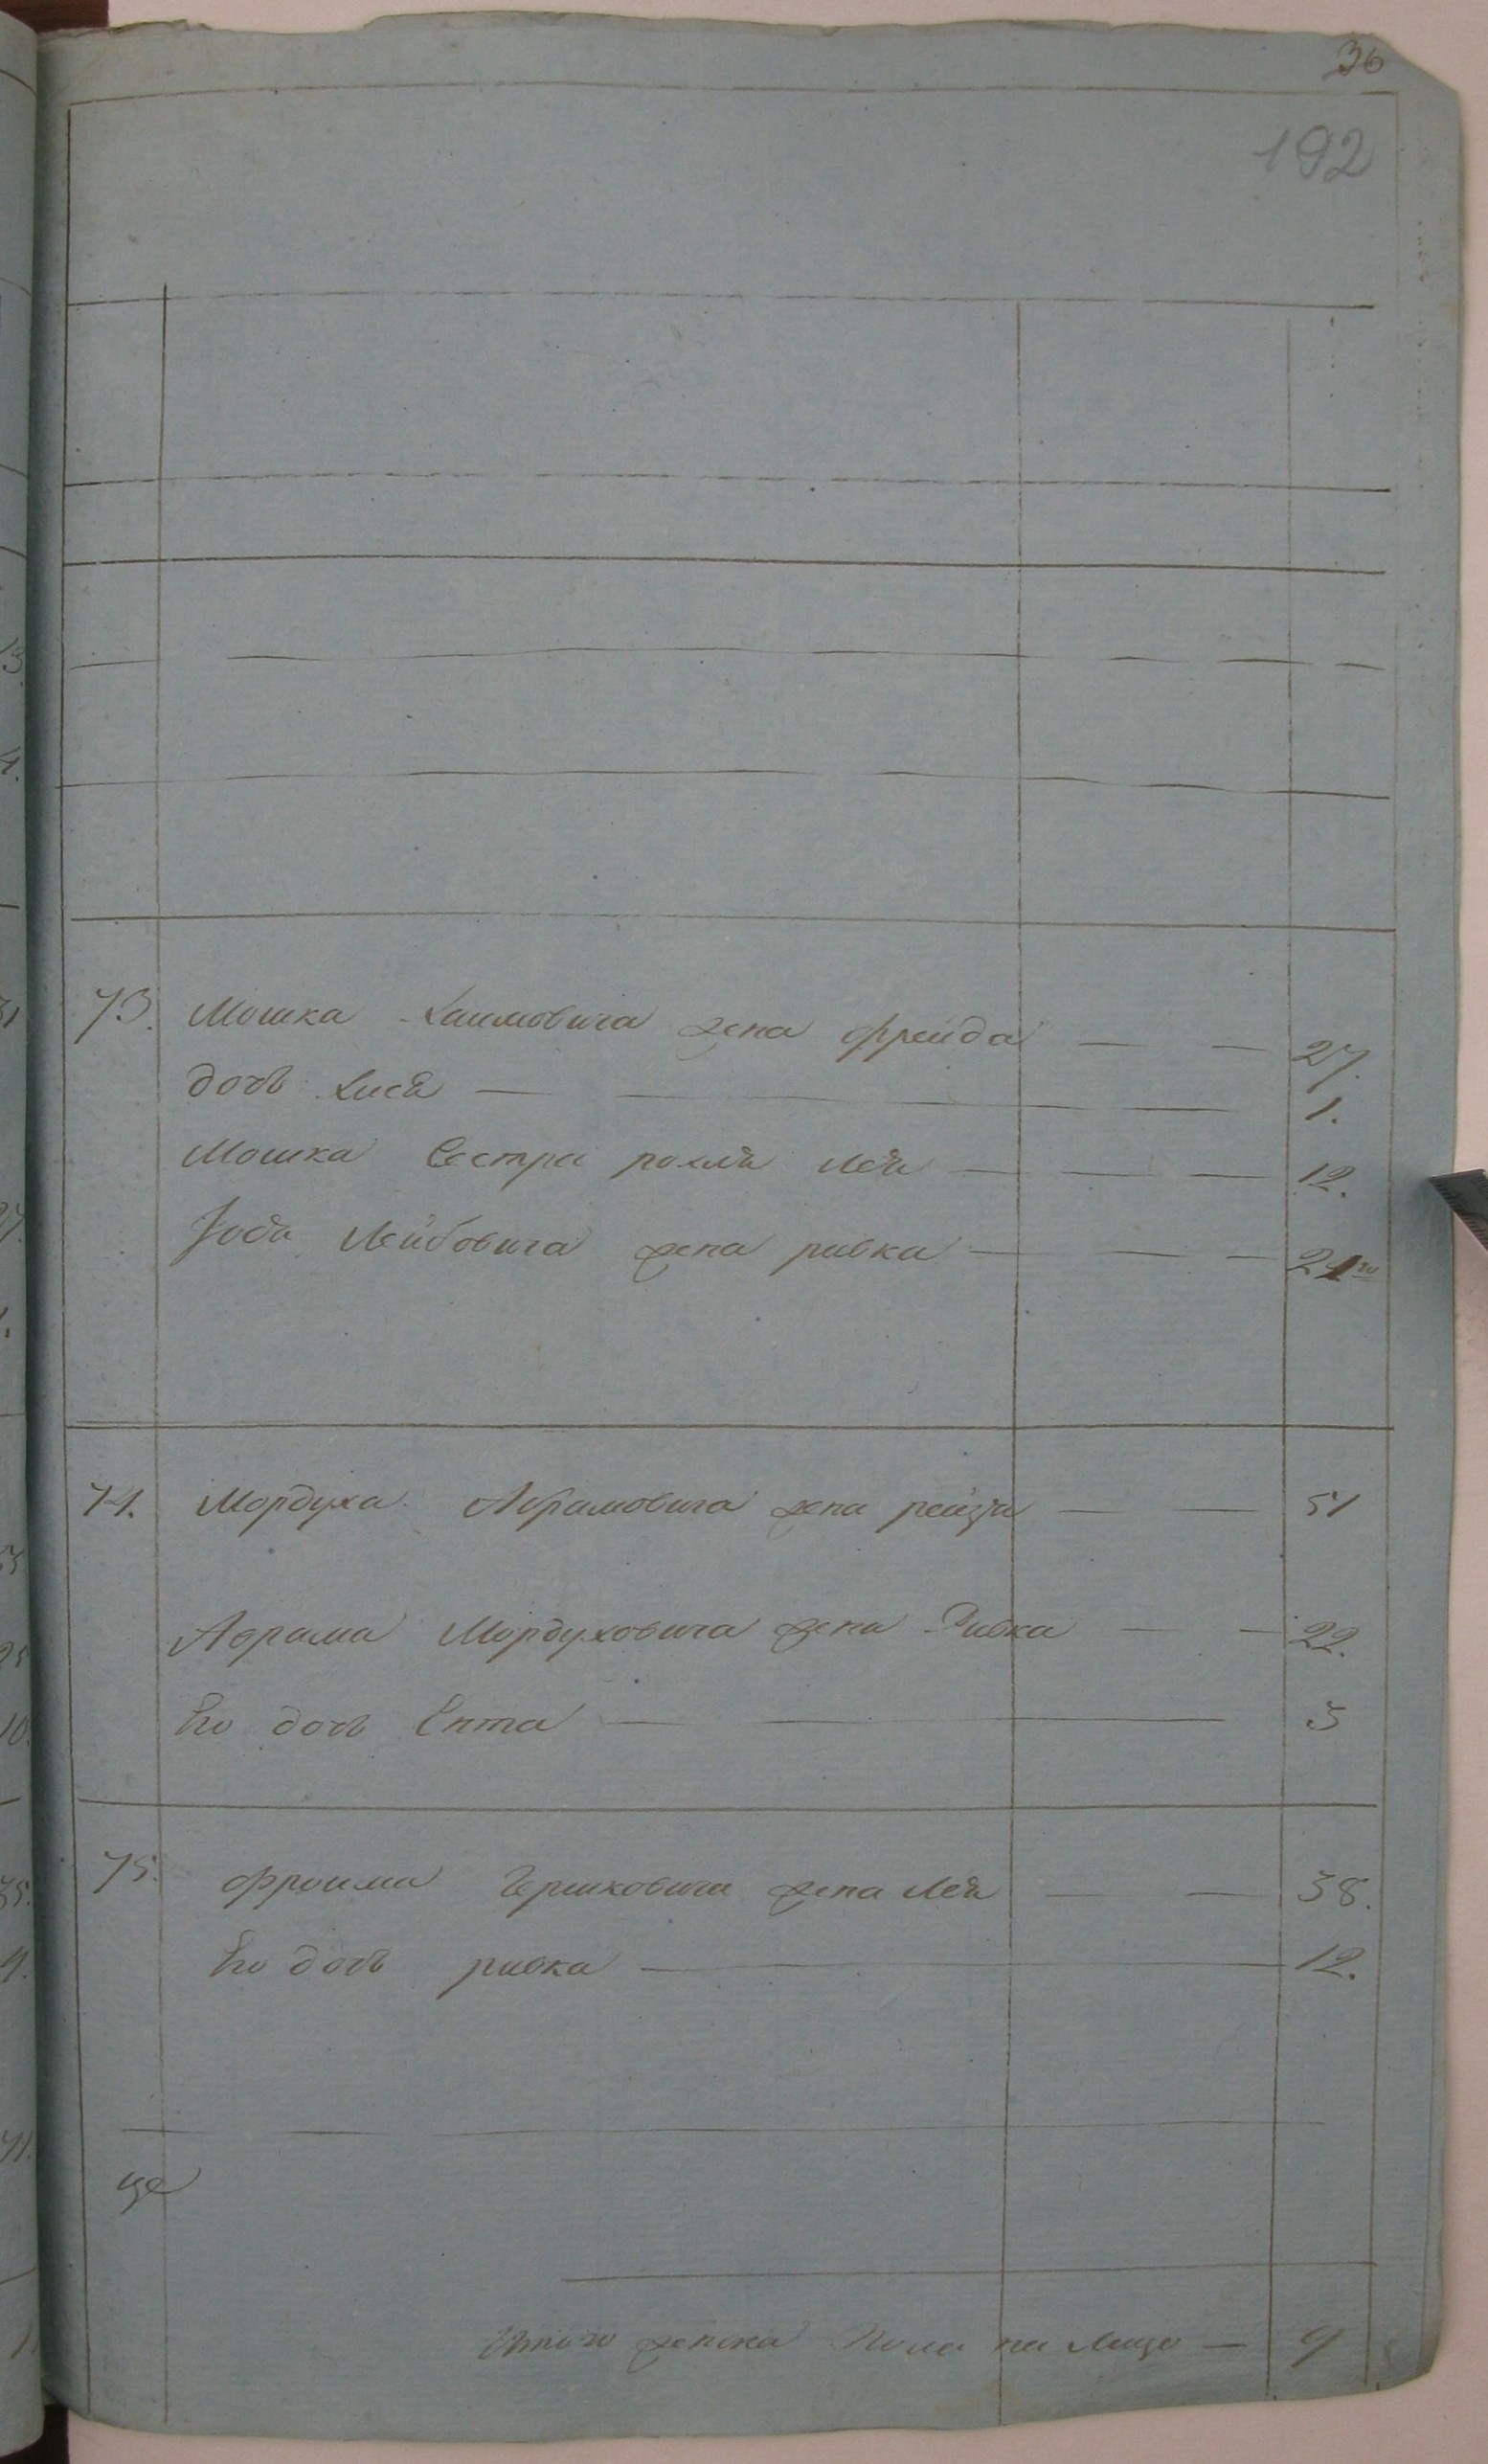 36
192
73. Мошка Хаимовича жена фрейда — — 27.
дочь Хися — — — 1.
Мошка Сестра рохля лея — — — 12.
Иоды Лейбовича жена ривка — — —
74. Мордуха Абрамовича жена рейзя — — 51
Абрама Мордуховича жена Ривка — — 22.
Ево дочь Ента — — — 3
75. Фроима Гершковича жена лея — — 38.
Ево дочь ривка — — 12.
Итого женска пола на лицо — 9